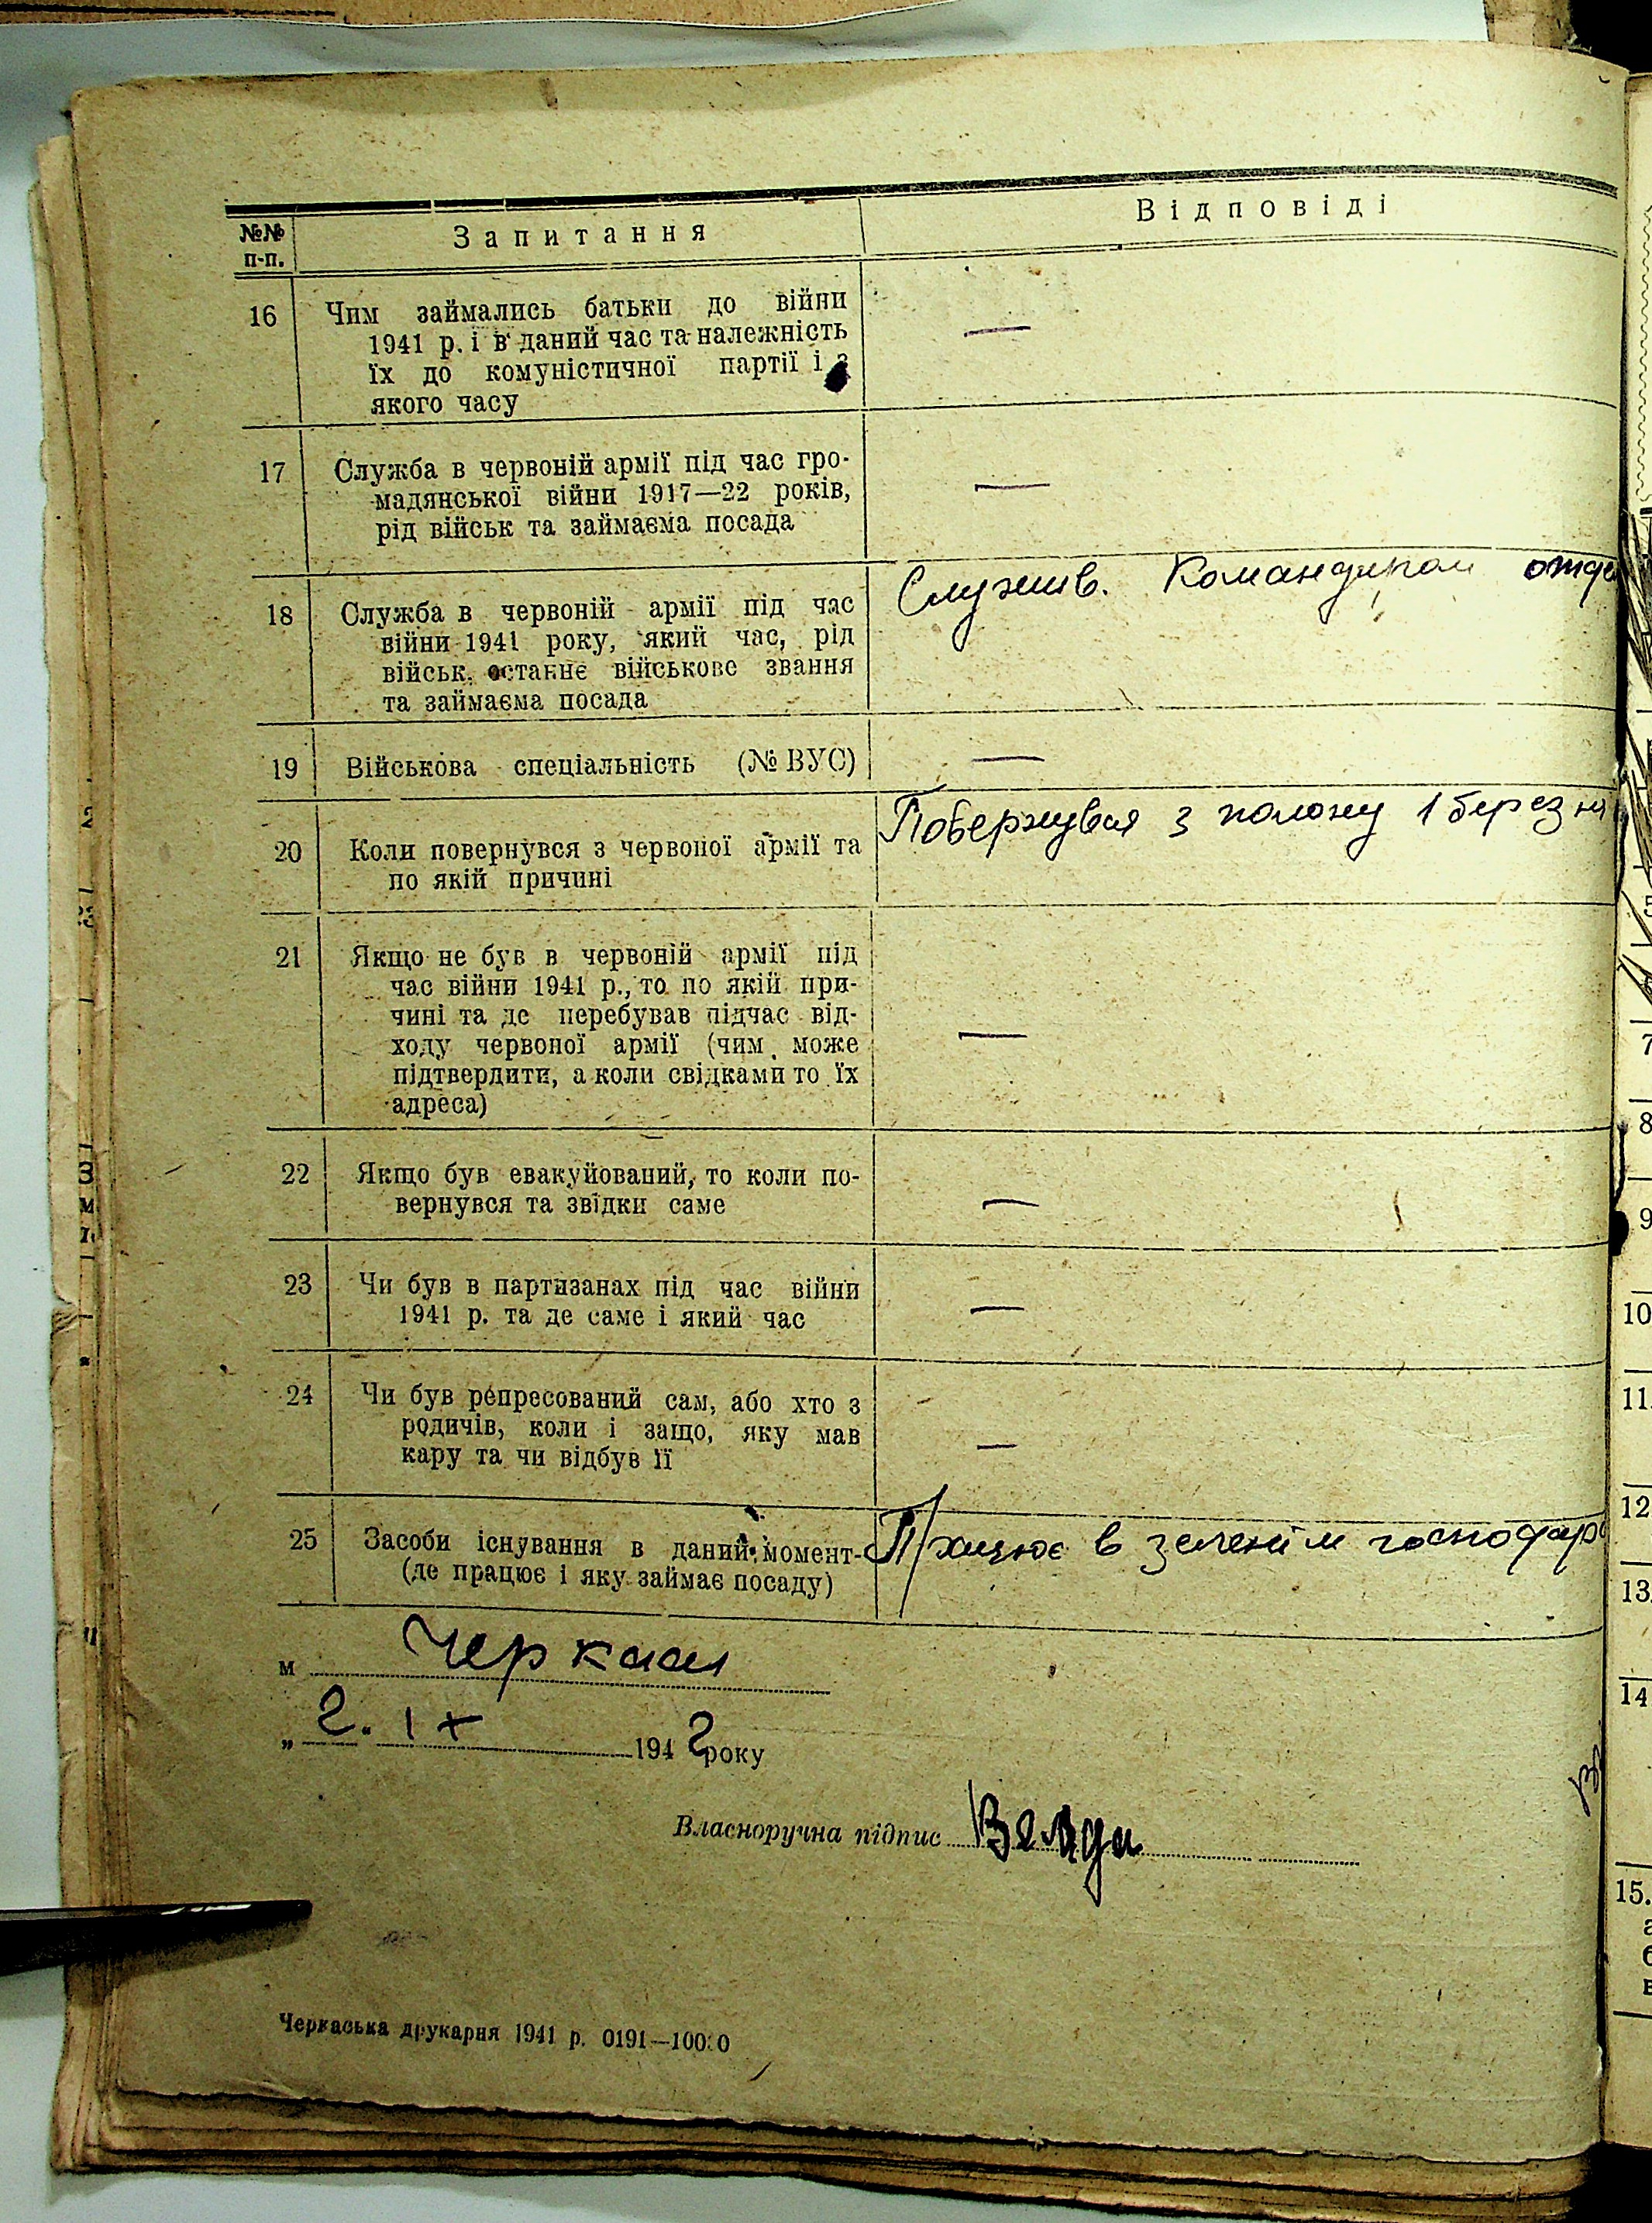 №№ п-п. Запитання Відповіді
16 Чим займались батьки до війни —
1941 р. і в даний час та належність
їх до комуністичної партії і з
якого часу
17 Служба в червоній армії під час гро-
мадянської війни 1917—22 років, —
рід військ та займаєма посада
18 Служба в червоній армії під час Служив. Командиром отде
війни 1941 року, який час, рід
військ, останнє військове звання
та займаєма посада
19 Військова спеціальність (№ ВУС) —
20 Коли повернувся з червоної армії та Повернувся з полону 1 березня
по якій причині
21 Якщо не був в червоній армії під
час війни 1941 р., то по якій при-
чині та де перебував підчас від-
ходу червоної армії (чим може —
підтвердити, а коли свідками то їх
адреса)
22 Якщо був евакуйований, то коли по-
вернувся та звідки саме —
23 Чи був в партизанах під час війни
1941 р. та де саме і який час —
24 Чи був репресований сам, або хто з
родичів, коли і защо, яку мав
кару та чи відбув її —
25 Засоби існування в даний момент Працює в зеленім господар
(де працює і яку займає посаду)
м Черкаси
„ 2. IX 1942 року
Власноручна підпис
Черкаська друкарня 1941 р. 0191—10000
7
8
9
10
11
12
13
14
15.